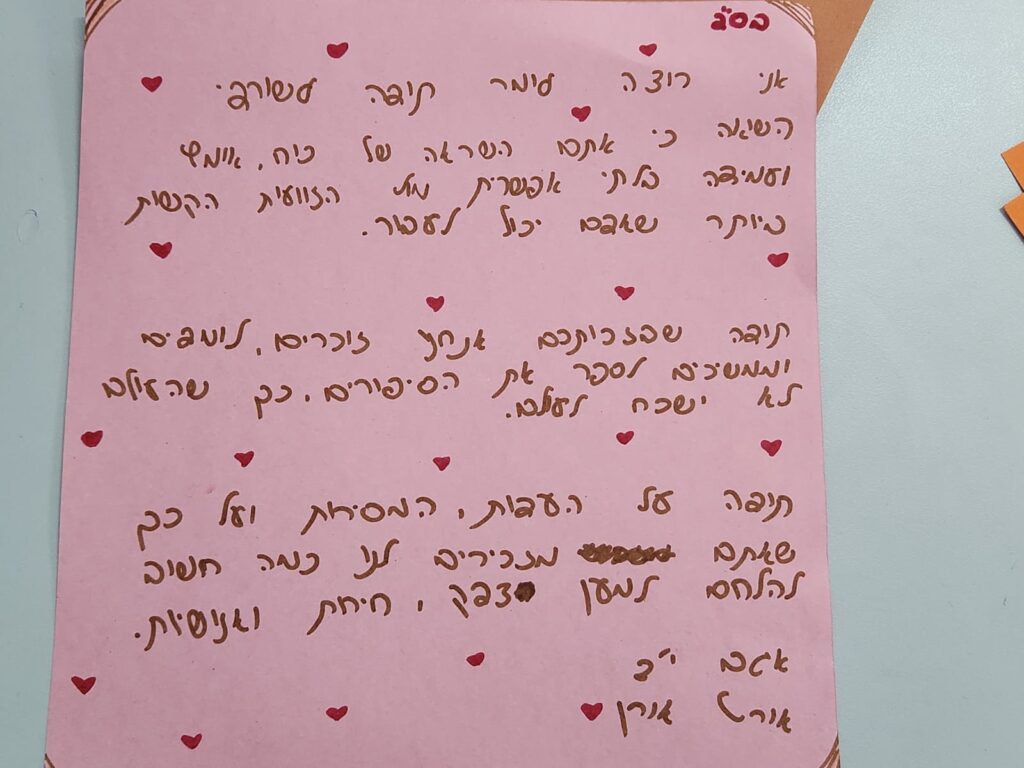 בס"ד
אני רוצה לומר תודה לשורדי
השואה כי אתם השראה של כוח, אומץ
ועמידה בלתי אפשרית מול הזוועות הקשות
ביותר שאדם יכול לעבור.
תודה שבזכותכם אנחנו זוכרים, לומדים
וממשיכים לספר את הסיפורים, כך שהעולם
לא ישכח לעולם.
תודה על העדות, המסירות ועל כך
שאתם מזכירים לנו כמה חשוב
להלחם למען צדק, חירות ואנושיות.
אגם י"ב
אורט אורן